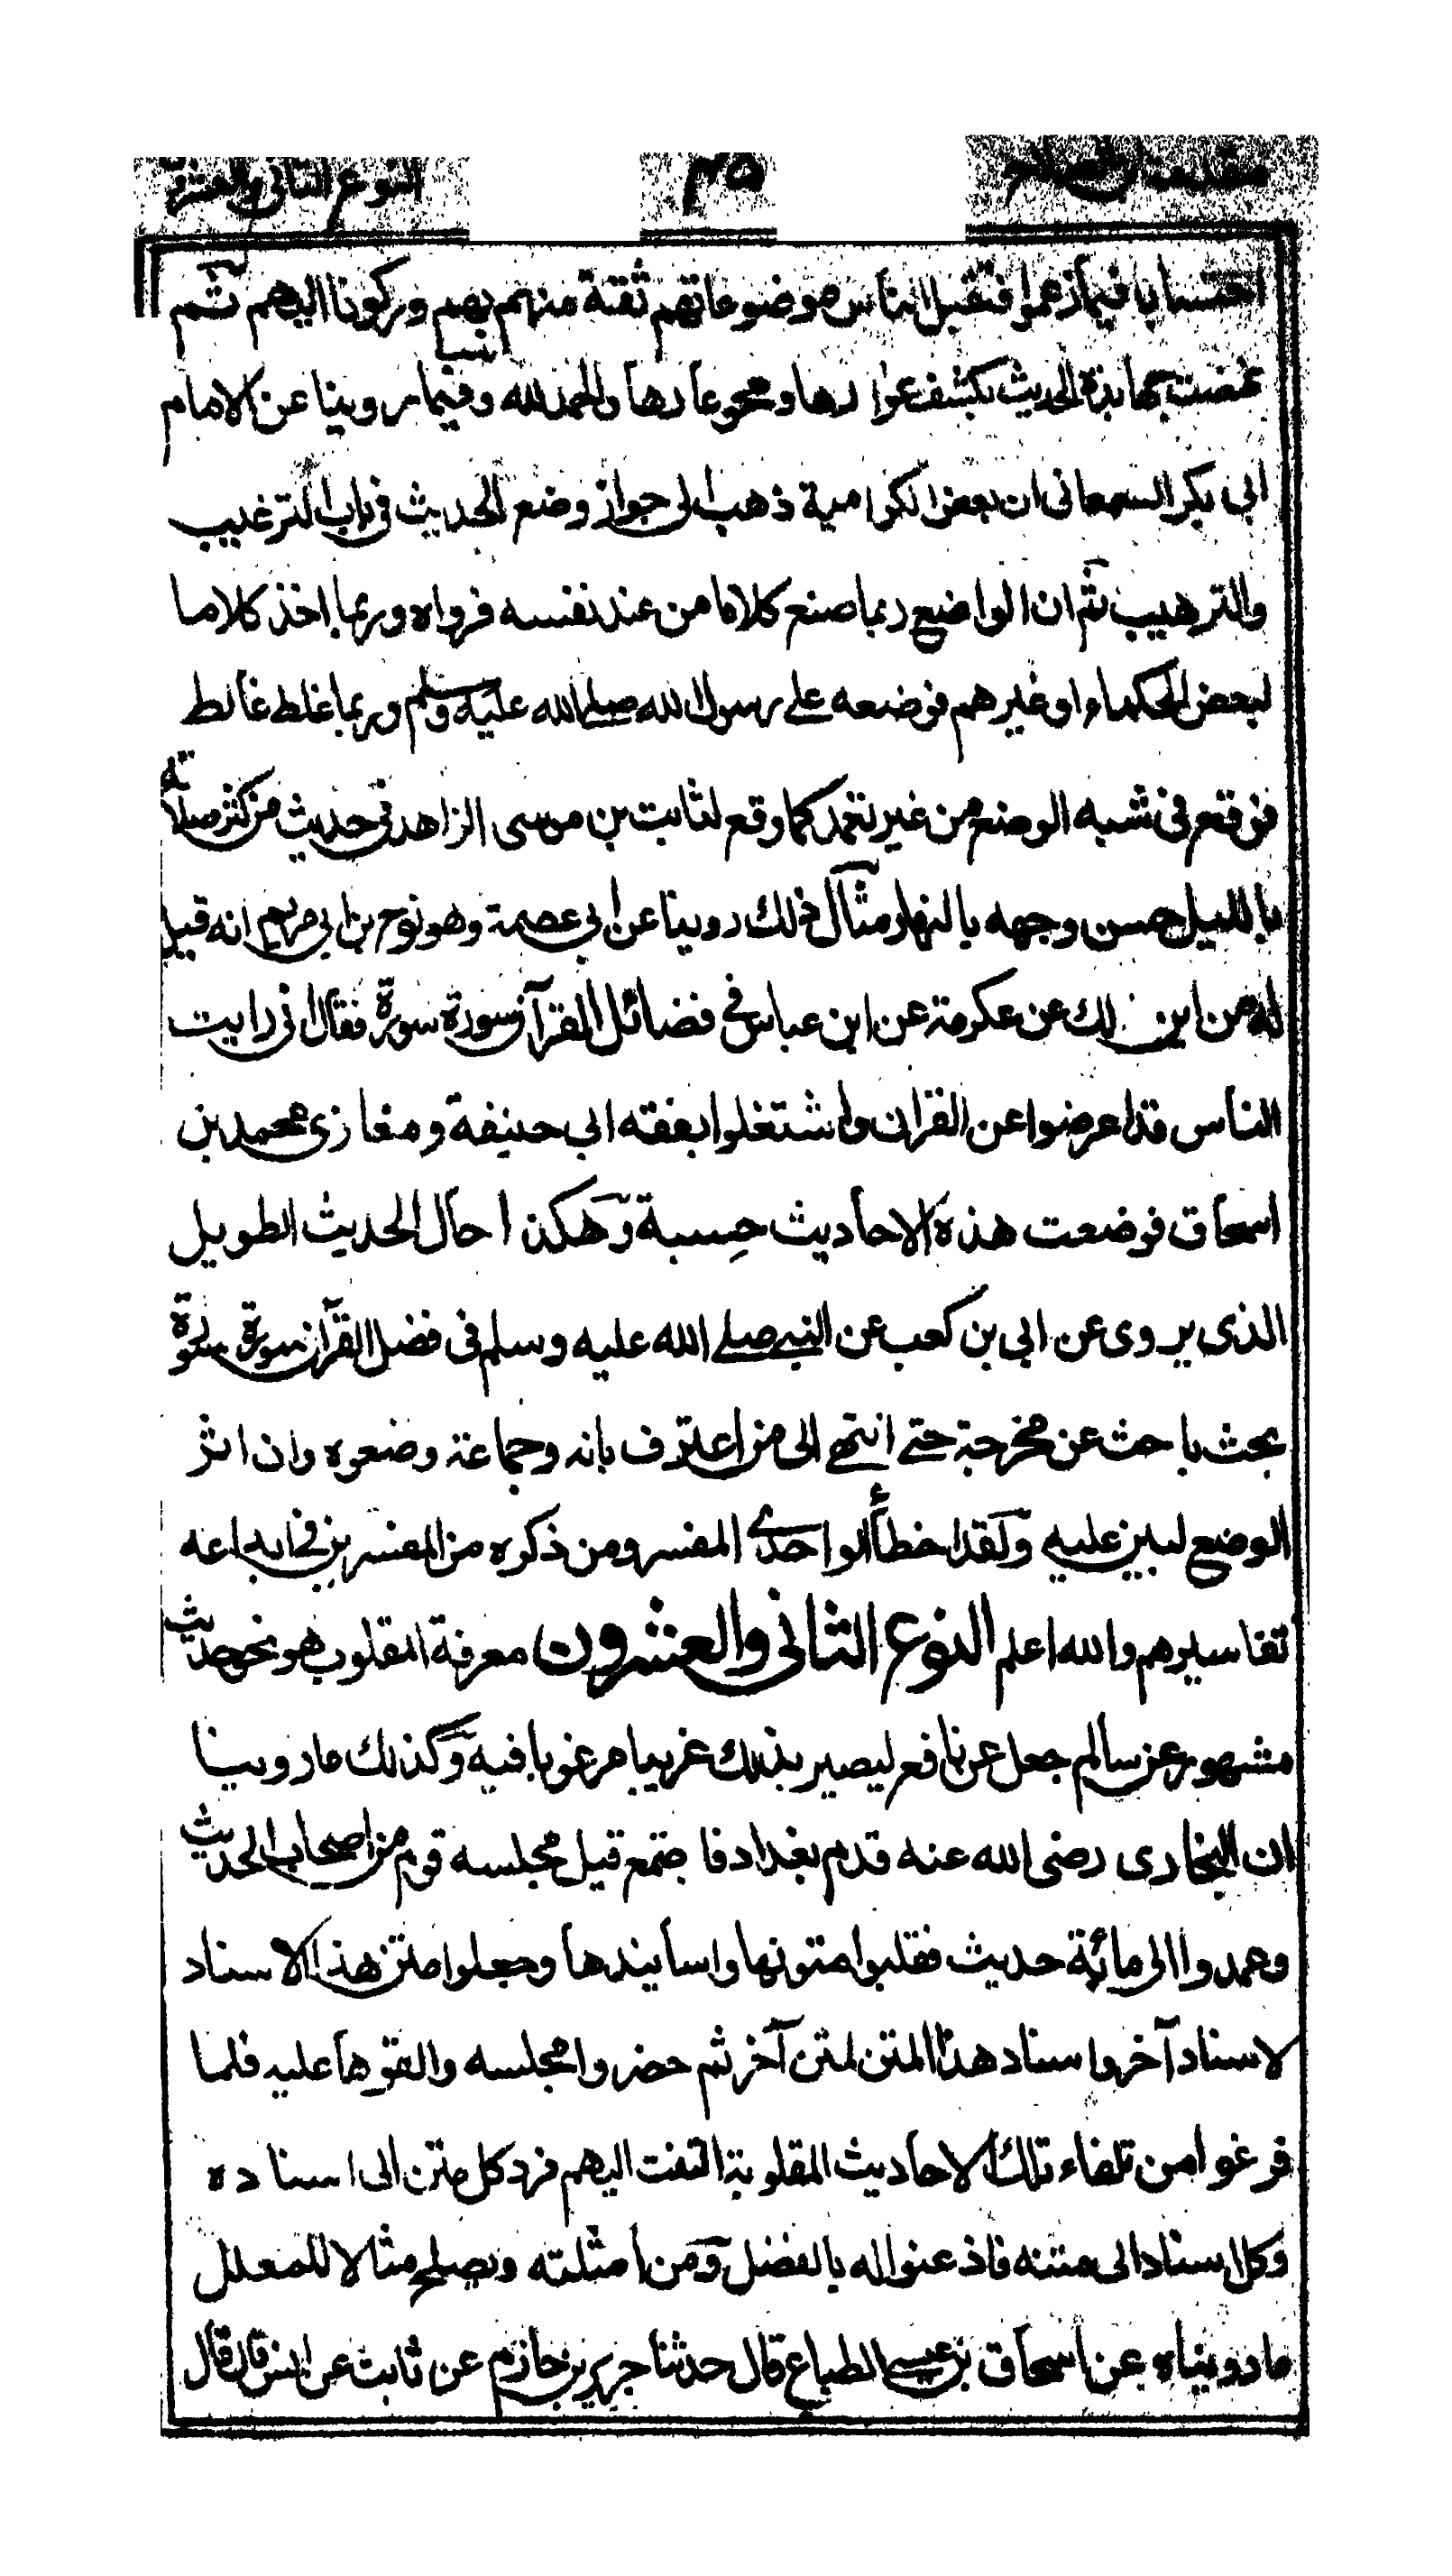 مقدمه ابن الصلاح ٤٥ النوع الثاني والعشرون
احتسابا فيما زعموا فتقبل الناس موضوعاتهم ثقة منهم بهم وركونا اليهم ثم
نهضت جهابذة الحديث بكشف عوارها ومحو عارها والحمد لله وفيما روينا عن الامام
ابي بكر السمعاني ان بعض الكرامية ذهب الى جواز وضع الحديث في باب الترغيب
والترهيب ثم ان الواضع ربما صنع كلاما من عند نفسه فرواه وربما اخذ كلاما
لبعض الحكماء او غيرهم فوضعه على رسول الله صلى الله عليه وسلم وربما غلط غالط
فوقع في شبه الوضع من غير تعمد كما وقع لثابت بن موسى الزاهد في حديث من كثر صلاته
بالليل حسن وجهه بالنهار مثال ذلك روينا عن ابي عصمة وهو نوح بن ابي مريم انه قيل
له من اين لك عن عكرمة عن ابن عباس في فضائل القرآن سورة سورة فقال اني رايت
الناس قد اعرضوا عن القران واشتغلوا بفقه ابي حنيفة ومغازي محمد بن
اسحاق فوضعت هذه الاحاديث حسبة وهكذا حال الحديث الطويل
الذي يروى عن ابي بن كعب عن النبي صلى الله عليه وسلم في فضل القرآن سورة سورة
بحث باحث عن مخرجة حتى انتهى الى من اعترف بانه وجماعة وضعوه وان اثر
الوضع لبين عليه ولقد اخطأ الواحدي المفسر ومن ذكره من المفسرين في ايداعه
تفاسيرهم والله اعلم النوع الثاني والعشرون معرفة المقلوب هو نحو حديث
مشهور عن سالم جعل عن نافع ليصير بذلك غريبا مرغوبا فيه وكذلك ما روينا
ان البخاري رضي الله عنه قدم بغداد فاجتمع قبل مجلسه قوم من اصحاب الحديث
وعمدوا الى مائة حديث فقلبوا متونها واسانيدها وجعلوا متن هذا الاسناد
لاسناد آخر واسناد هذا المتن لمتن آخر ثم حضروا مجلسه والقوها عليه فلما
فرغوا من تلقاء تلك الاحاديث المقلوبة التفت اليهم فرد كل متن الى اسناده
وكل اسناد الى متنه فاذعنوا له بالفضل ومن امثلته ويصلح مثالا للمعلل
ما رويناه عن اسحاق بن عيسى الطباع قال حدثنا جرير بن حازم عن ثابت عن انس قال قال